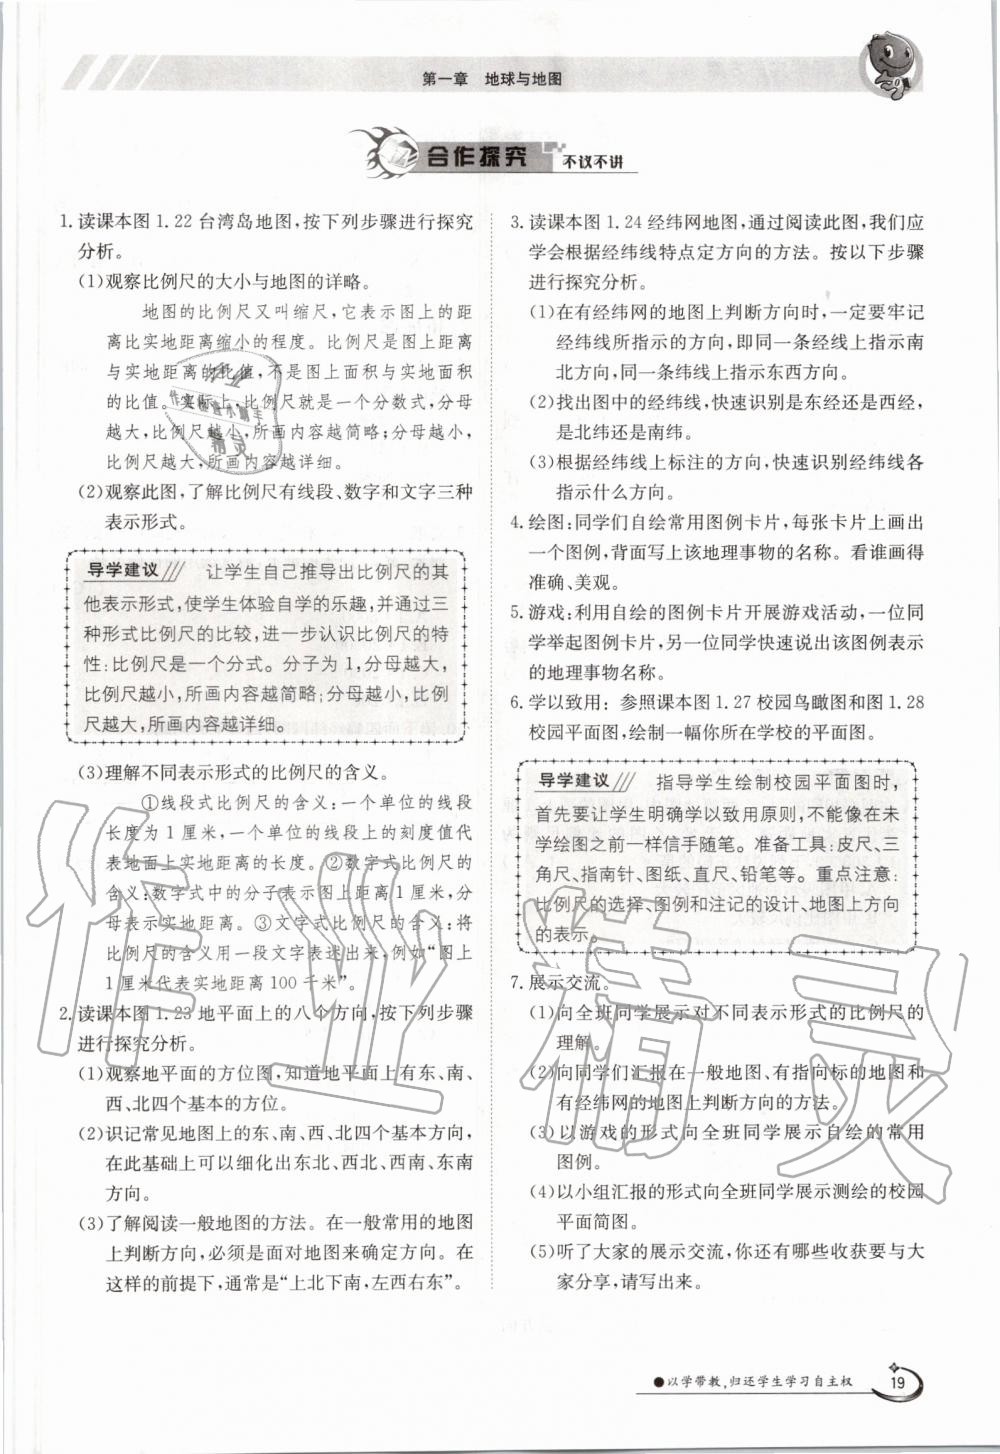 第一章 地球与地图
合作探究 不议不讲
1. 读课本图 1.22 台湾岛地图,按下列步骤进行探究
分析。
(1)观察比例尺的大小与地图的详略。
地图的比例尺又叫缩尺,它表示图上的距
离比实地距离缩小的程度。比例尺是图上距离
与实地距离的比值,不是图上面积与实地面积
的比值。实际上,比例尺就是一个分数式,分母
越大,比例尺越小,所画内容越简略;分母越小,
比例尺越大,所画内容越详细。
(2)观察此图,了解比例尺有线段、数字和文字三种
表示形式。
导学建议 让学生自己推导出比例尺的其
他表示形式,使学生体验自学的乐趣,并通过三
种形式比例尺的比较,进一步认识比例尺的特
性:比例尺是一个分式。分子为 1,分母越大,
比例尺越小,所画内容越简略;分母越小,比例
尺越大,所画内容越详细。
(3)理解不同表示形式的比例尺的含义。
①线段式比例尺的含义:一个单位的线段
长度为 1 厘米,一个单位的线段上的刻度值代
表地面上实地距离的长度。②数字式比例尺的
含义:数字式中的分子表示图上距离 1 厘米,分
母表示实地距离。③文字式比例尺的含义:将
比例尺的含义用一段文字表述出来,例如“图上
1 厘米代表实地距离 100 千米”。
2. 读课本图 1.23 地平面上的八个方向,按下列步骤
进行探究分析。
(1)观察地平面的方位图,知道地平面上有东、南、
西、北四个基本的方位。
(2)识记常见地图上的东、南、西、北四个基本方向,
在此基础上可以细化出东北、西北、西南、东南
方向。
(3)了解阅读一般地图的方法。在一般常用的地图
上判断方向,必须是面对地图来确定方向。在
这样的前提下,通常是“上北下南,左西右东”。
3. 读课本图 1.24 经纬网地图,通过阅读此图,我们应
学会根据经纬线特点定方向的方法。按以下步骤
进行探究分析。
(1)在有经纬网的地图上判断方向时,一定要牢记
经纬线所指示的方向,即同一条经线上指示南
北方向,同一条纬线上指示东西方向。
(2)找出图中的经纬线,快速识别是东经还是西经,
是北纬还是南纬。
(3)根据经纬线上标注的方向,快速识别经纬线各
指示什么方向。
4. 绘图:同学们自绘常用图例卡片,每张卡片上画出
一个图例,背面写上该地理事物的名称。看谁画得
准确、美观。
5. 游戏:利用自绘的图例卡片开展游戏活动,一位同
学举起图例卡片,另一位同学快速说出该图例表示
的地理事物名称。
6. 学以致用:参照课本图 1.27 校园鸟瞰图和图 1.28
校园平面图,绘制一幅你所在学校的平面图。
导学建议 指导学生绘制校园平面图时,
首先要让学生明确学以致用原则,不能像在未
学绘图之前一样信手随笔。准备工具:皮尺、三
角尺、指南针、图纸、直尺、铅笔等。重点注意:
比例尺的选择、图例和注记的设计、地图上方向
的表示。
7. 展示交流。
(1)向全班同学展示对不同表示形式的比例尺的
理解。
(2)向同学们汇报在一般地图、有指向标的地图和
有经纬网的地图上判断方向的方法。
(3)以游戏的形式向全班同学展示自绘的常用
图例。
(4)以小组汇报的形式向全班同学展示测绘的校园
平面简图。
(5)听了大家的展示交流,你还有哪些收获要与大
家分享,请写出来。
●以学带教,归还学生学习自主权
19
作业精灵